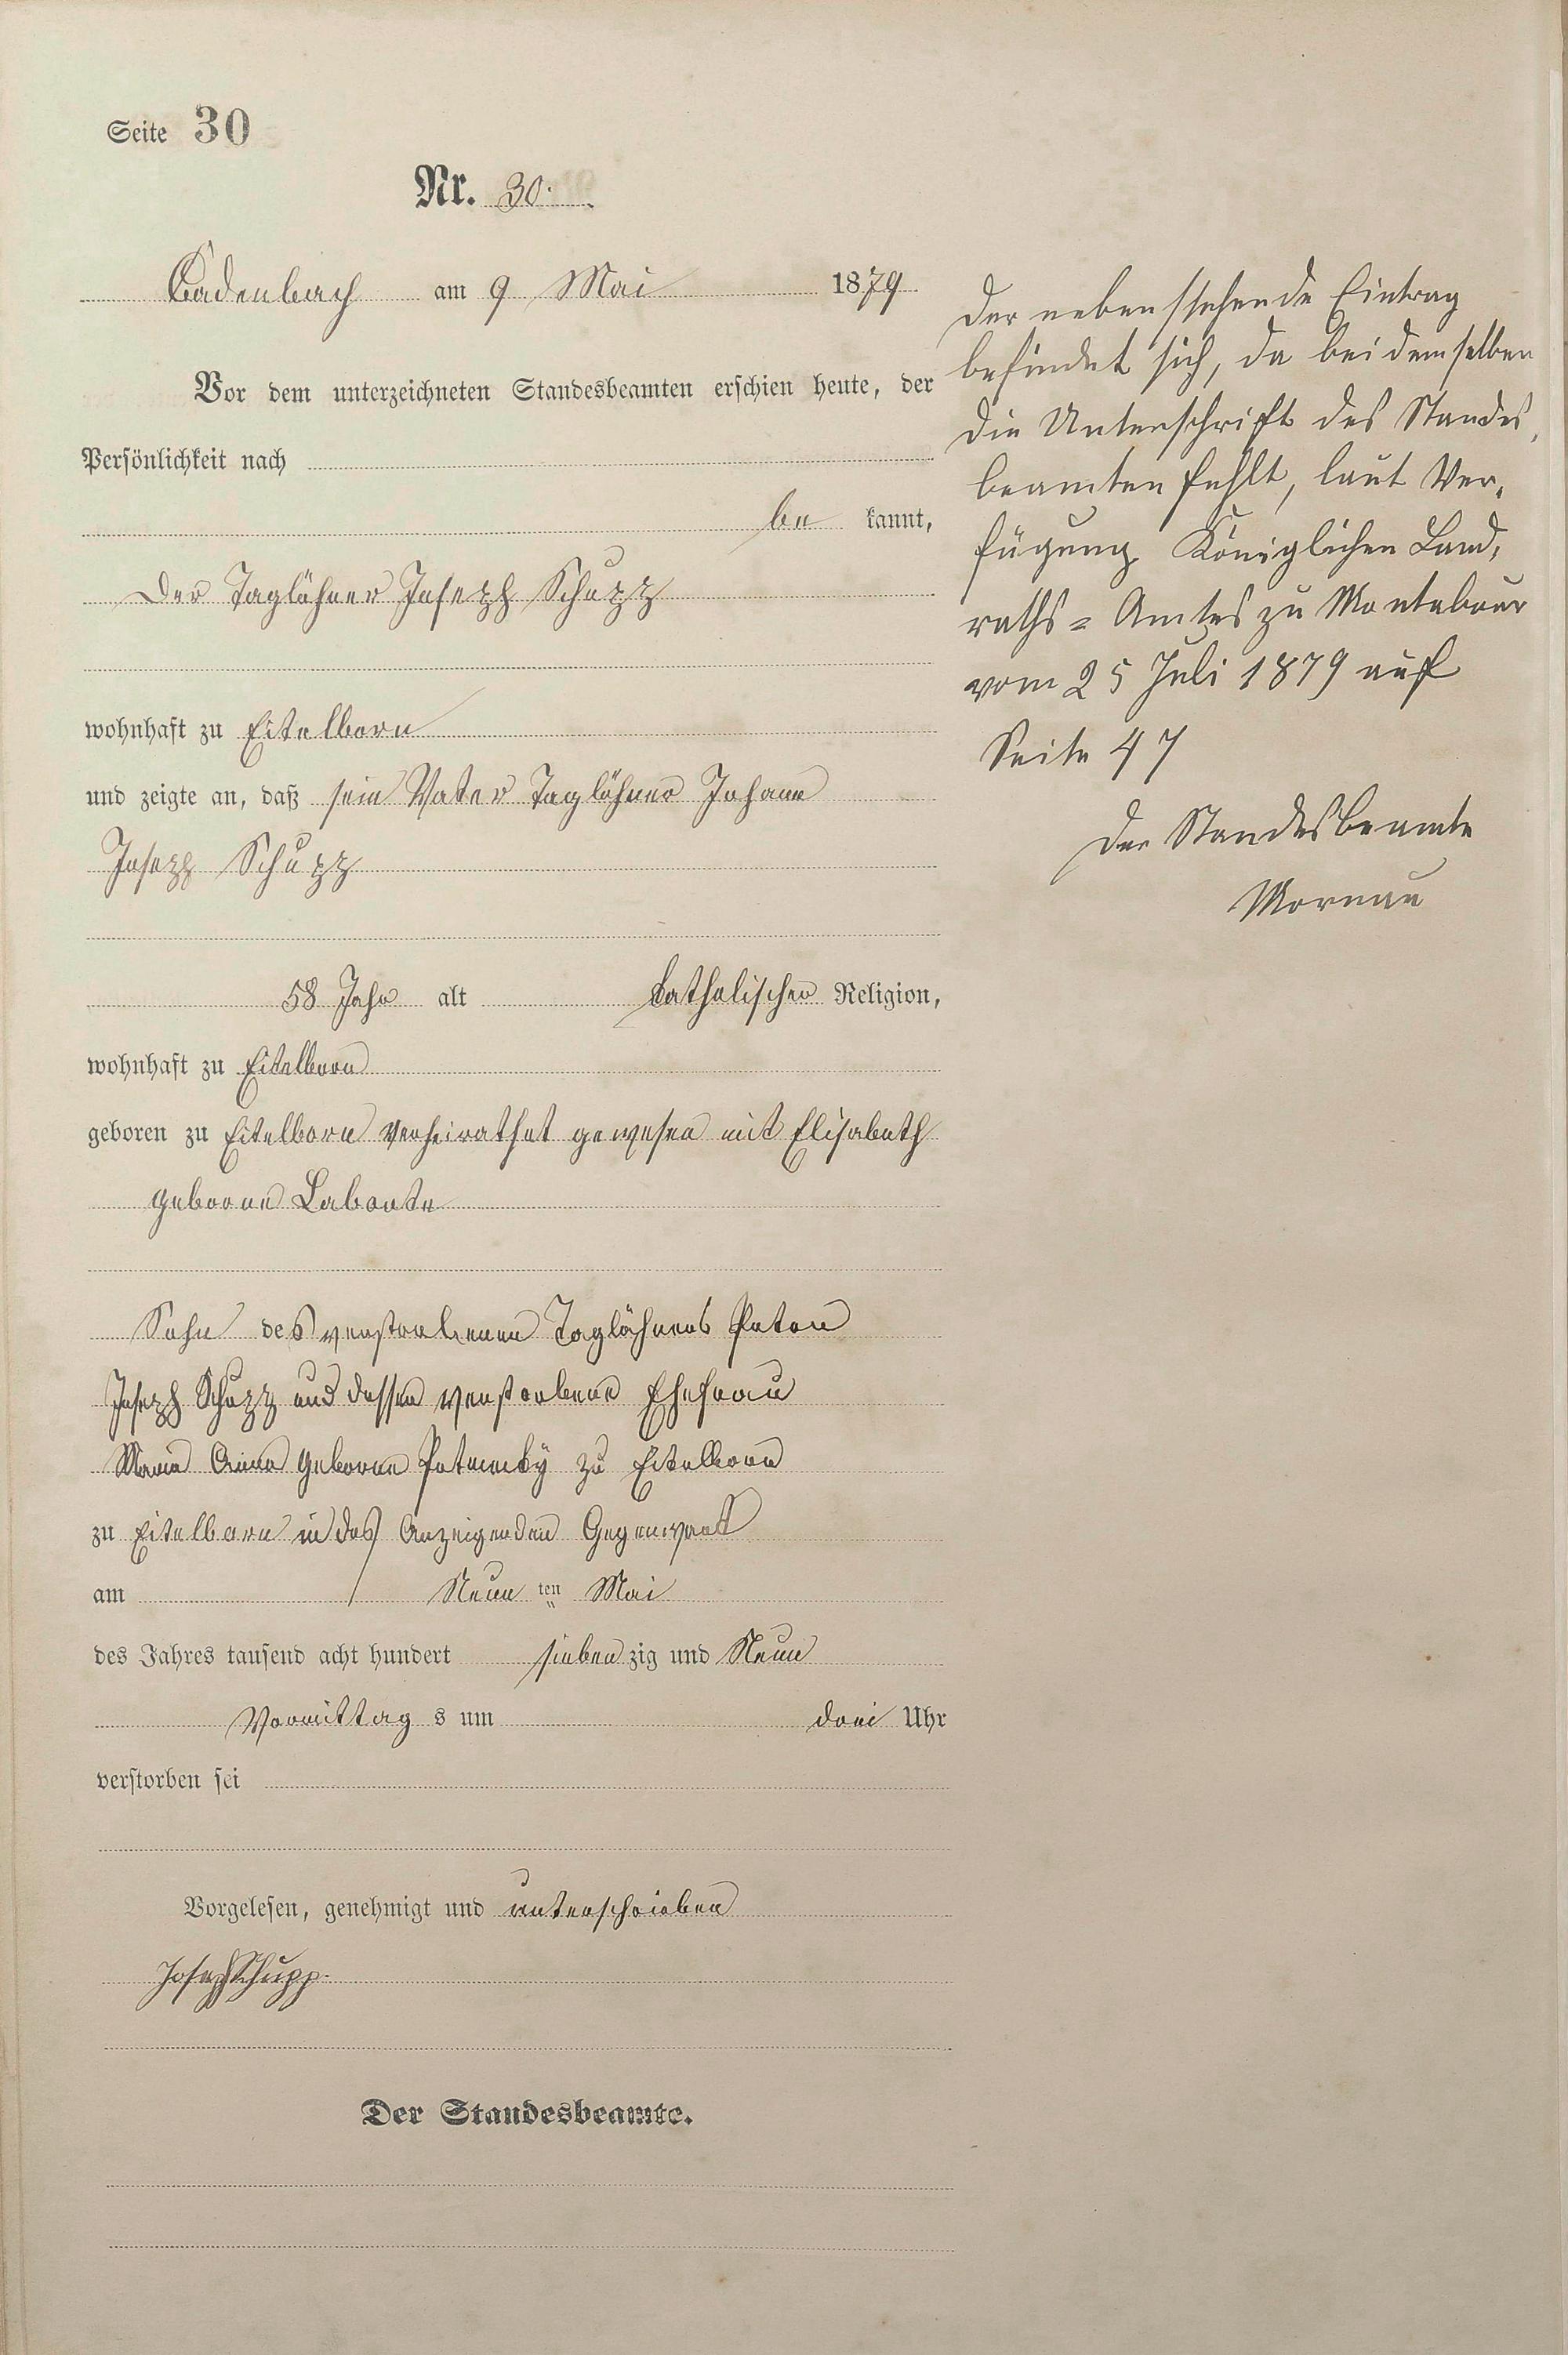 Seite 30
Nr. 30.
Cadenbach am 9 Mai 1879
Vor dem unterzeichneten Standesbeamten erschien heute, der
Persönlichkeit nach
be kannt,
der Taglöhner Joseph Schupp
wohnhaft zu Eitelborn
und zeigte an, daß sein Vater Taglöhner Johann
Joseph Schupp
58 Jahr alt katholischer Religion,
wohnhaft zu Eitelborn
geboren zu Eitelborn verheirathet gewesen mit Elisabeth
geborne Labonte
Sohn des verstorbenen Taglöhners
Joseph Schupp und dessen verstorbene Ehefrau
Maria Anna geborne zu Eitelborn
zu Eitelborn in des Anzeigenden Gegenwart
am Neun ten Mai
des Jahres tausend acht hundert sieben zig und Neun
Vormittag s um drei Uhr
verstorben sei
Vorgelesen, genehmigt und unterschrieben
Joseph Schupp.
Der Standesbeamte.
Der nebenstehende Eintrag
befindet sich, da bei demselben
die Unterschrift des Standes,
beamten fehlt, laut Ver,
fügung Königlichen Land,
raths=Amtes zu Montabaur
vom 25 Juli 1879 auf
Seite 47
Der Standesbeamte